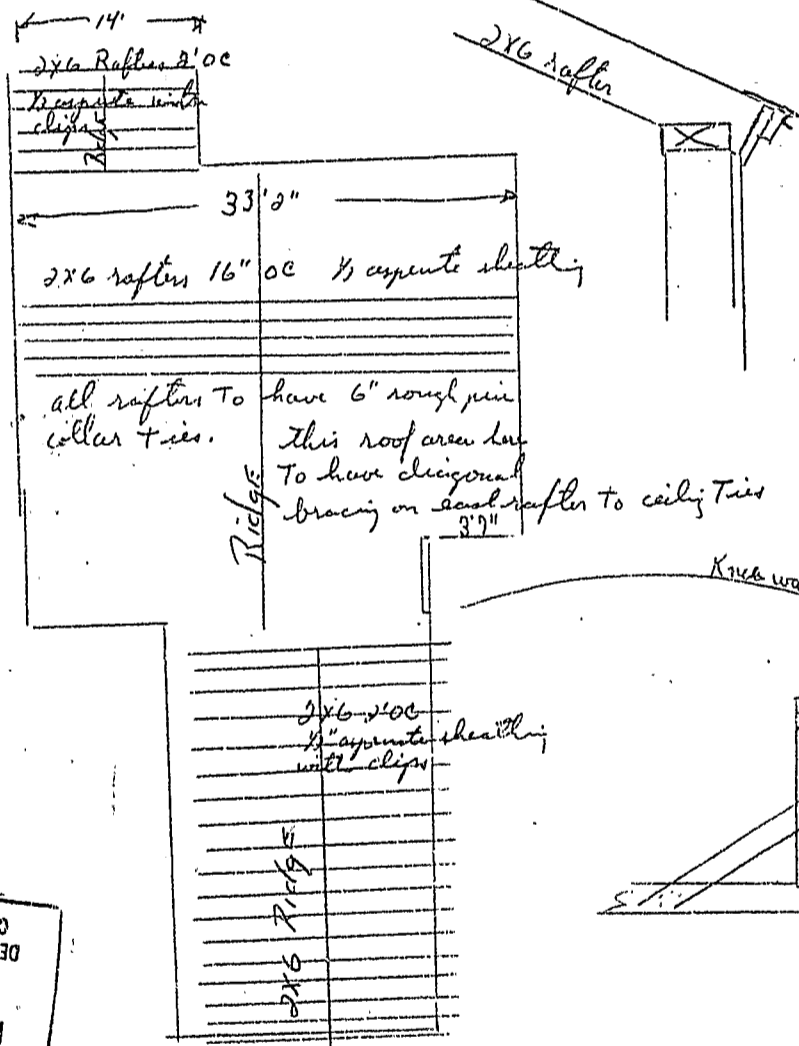 14'
2x6 Rafters 2' OC
½ aspenite with
clips
Ridge
2x6 rafter
33'2"
2x6 rafters 16" OC ½ aspenite sheathing
all rafters To have 6" rough pine
collar Ties.
this roof area here
To have diagonal
bracing on each rafter to ceiling Ties
Ridge
3'7"
Knee wa
2x6 2' OC
½" aspenite sheathing
with clips
2x6 Ridge